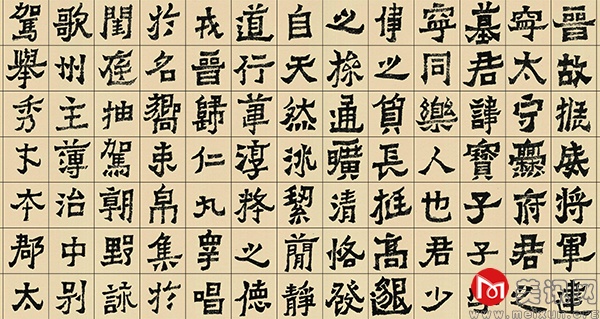 晉故振威將軍建
寧太守爨府君
墓君諱寶子子
寧同樂人也君少
偉之質長挺高邈
之操通曠清恪發
自天然冰絜簡靜
道行葦淳粹之德
戎晉歸仁九皋唱
於名嚮束帛集於
閨庭抽駕朝野詠
歌州主簿治中別
駕舉秀才本郡太
美讯网